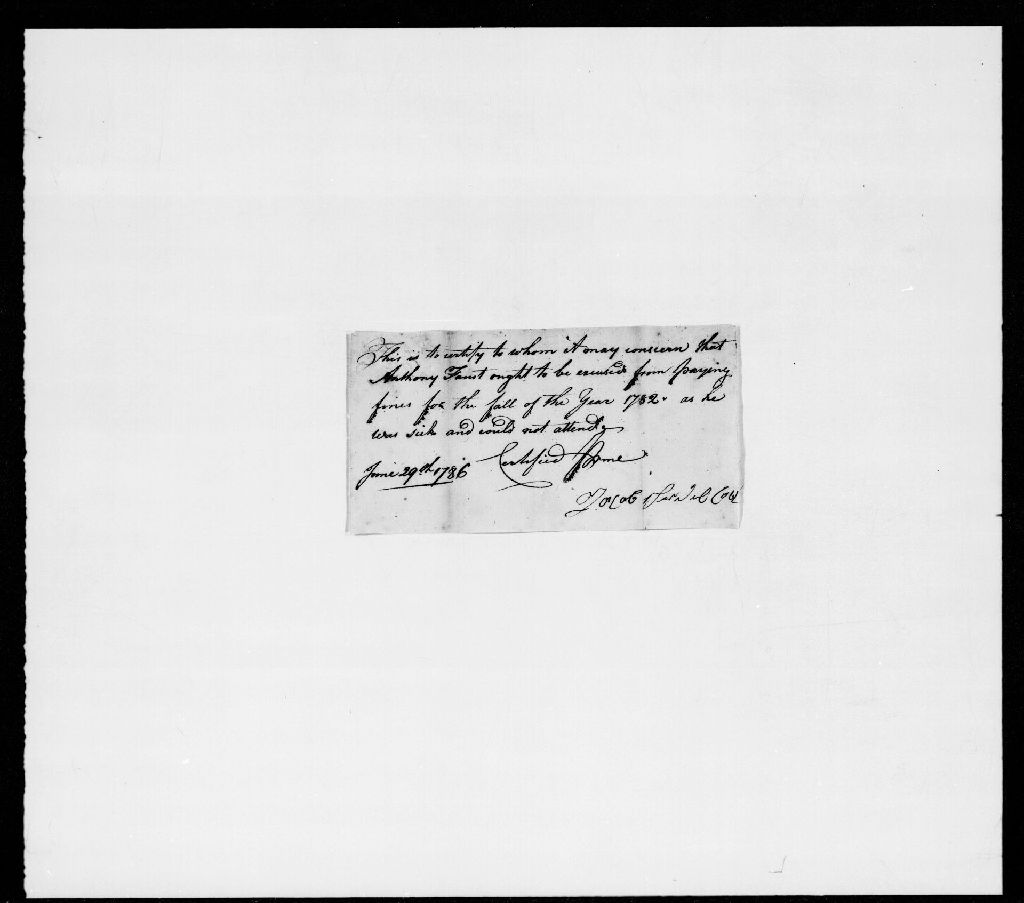 This is to certify to whom it may concern that
Anthony Faust ought to be excused from paying
fines for the fall of the Year 1782. as he
was sick and could not attend,
June 29th 1786 Certified P me
Jacob Col